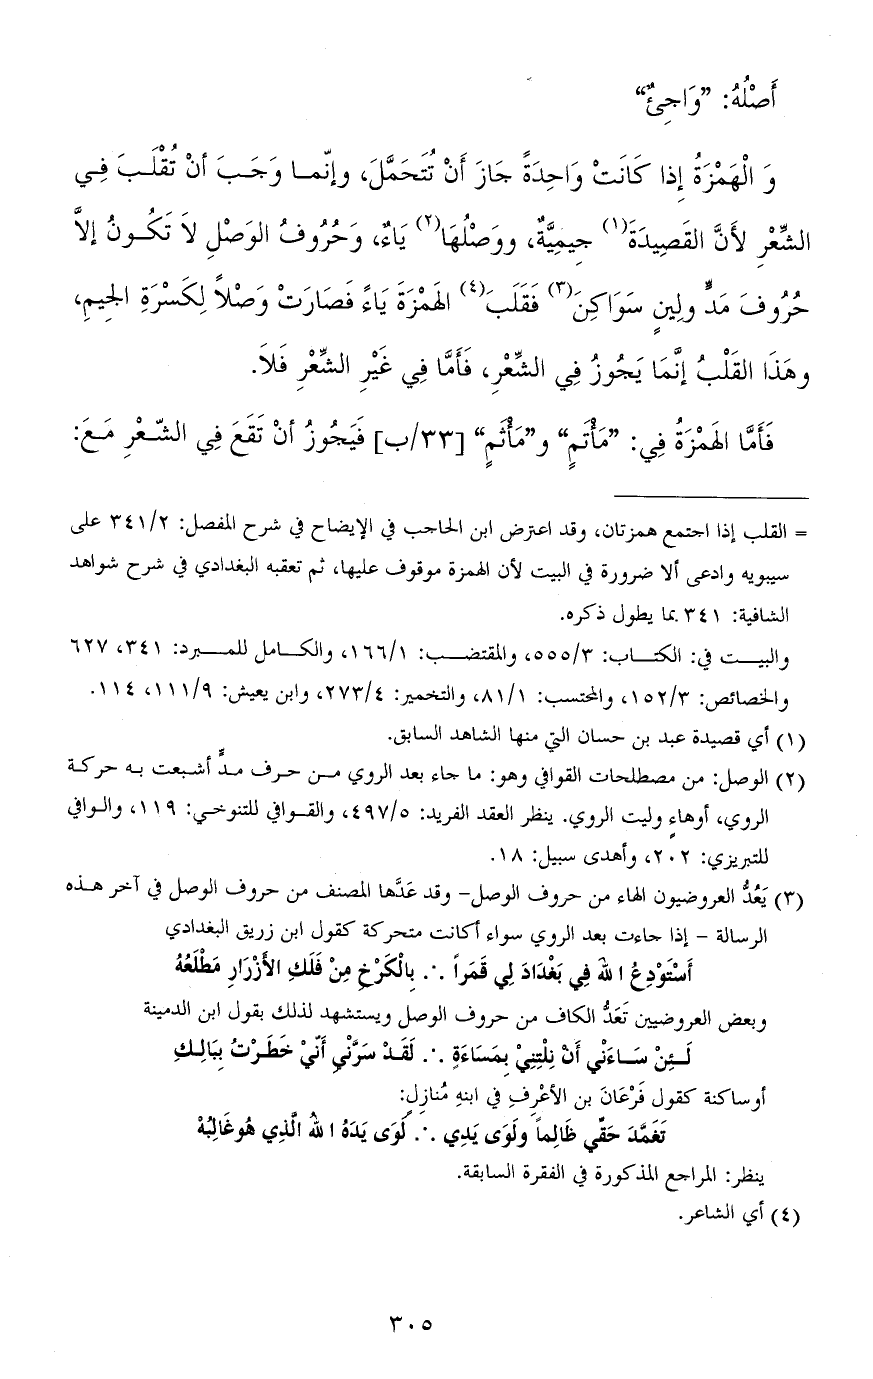 أَصْلُهُ: ”وَاجِئٌ“
وَ الْهَمْزَةُ إِذا كَانَتْ وَاحِدَةً جَازَ أَنْ تُتَحَمَّلَ، وإِنّمـا وَجَـبَ أَنْ تُقْلَـبَ فِـي
الشِّعْرِ لأَنَّ القَصِيدَةَ(١) جِيمِيَّةٌ، ووَصْلُهَا(٢) يَاءٌ، وَحُرُوفُ الوَصْلِ لاَ تَكُـونُ إلاَّ
حُرُوفَ مَدٍّ ولِينٍ سَوَاكِنَ(٣) فَقَلَبَ(٤) الهَمْزَةَ يَاءً فَصَارَتْ وَصْلاً لِكَسْرَةِ الجِيمِ،
وهَذَا القَلْبُ إِنَّمَا يَجُوزُ فِي الشِّعْرِ، فَأَمَّا فِي غَيْرِ الشِّعْرِ فَلاَ.
فَأَمَّا الهَمْزَةُ فِي: ”مَأْتَمٍ“ و”مَأْثَمٍ“ [٣٣/ب] فَيَجُوزُ أَنْ تَقَعَ فِي الشّـعْرِ مَـعَ:
= القلب إذا اجتمع همزتان، وقد اعترض ابن الحاجب في الإيضاح في شرح المفصل: ٣٤١/٢ على
سيبويه وادعى ألا ضرورة في البيت لأن الهمزة موقوف عليها، ثم تعقبه البغدادي في شرح شواهد
الشافية: ٣٤١ بما يطول ذكره.
والبيـــت في: الكتـــاب: ٥٥٥/٣، والمقتضـــب: ١٦٦/١، والكـامل للمـــبرد: ٣٤١، ٦٢٧
والخصائص: ١٥٢/٣، والمحتسب: ٨١/١، والتخمير: ٢٧٣/٤، وابن يعيش: ١١١/٩، ١١٤.
(١) أي قصيدة عبد بن حسان التي منها الشاهد السابق.
(٢) الوصل: من مصطلحات القوافي وهو: ما جاء بعد الروي مـن حـرف مـدٍّ أشبعت بـه حركـة
الروي، أوهاءٍ وليت الروي. ينظر العقد الفريد: ٤٩٧/٥، والقـوافي للتنوخي: ١١٩، والـوافي
للتبريزي: ٢٠٢، وأهدى سبيل: ١٨.
(٣) يَعُدُّ العروضيون الهاء من حروف الوصل– وقد عَدَّها المصنف من حروف الوصل في آخر هـذه
الرسالة – إذا جاءت بعد الروي سواء أكانت متحركة كقول ابن زريق البغدادي
أَسْتَوْدِعُ اللهَ فِي بَغْدَادَ لِي قَمَراً ∴ بِالْكَرْخِ مِنْ فَلَكِ الأَزْرَارِ مَطْلَعُهُ
وبعض العروضيين تَعَدُّ الكاف من حروف الوصل ويستشهد لذلك بقول ابن الدمينة
لَـئِنْ سَـاءَنِي أَنْ نِلْتِنِيْ بِمَسَاءَةٍ ∴ لَقَـدْ سَرَّنِي أَنّيْ خَطَرْتُ بِبَالِـكِ
أوساكنة كقول فَرْعَانَ بن الأعْرِفِ في ابنهِ مُنَازِلٍ:
تَغَمَّدَ حَقّي ظَالِماً ولَوَى يَدِي ∴ لَوَى يَدَهُ اللهُ الَّذِي هُوغَالِبُهْ
ينظر: المراجع المذكورة في الفقرة السابقة.
(٤) أي الشاعر.
٣٠٥